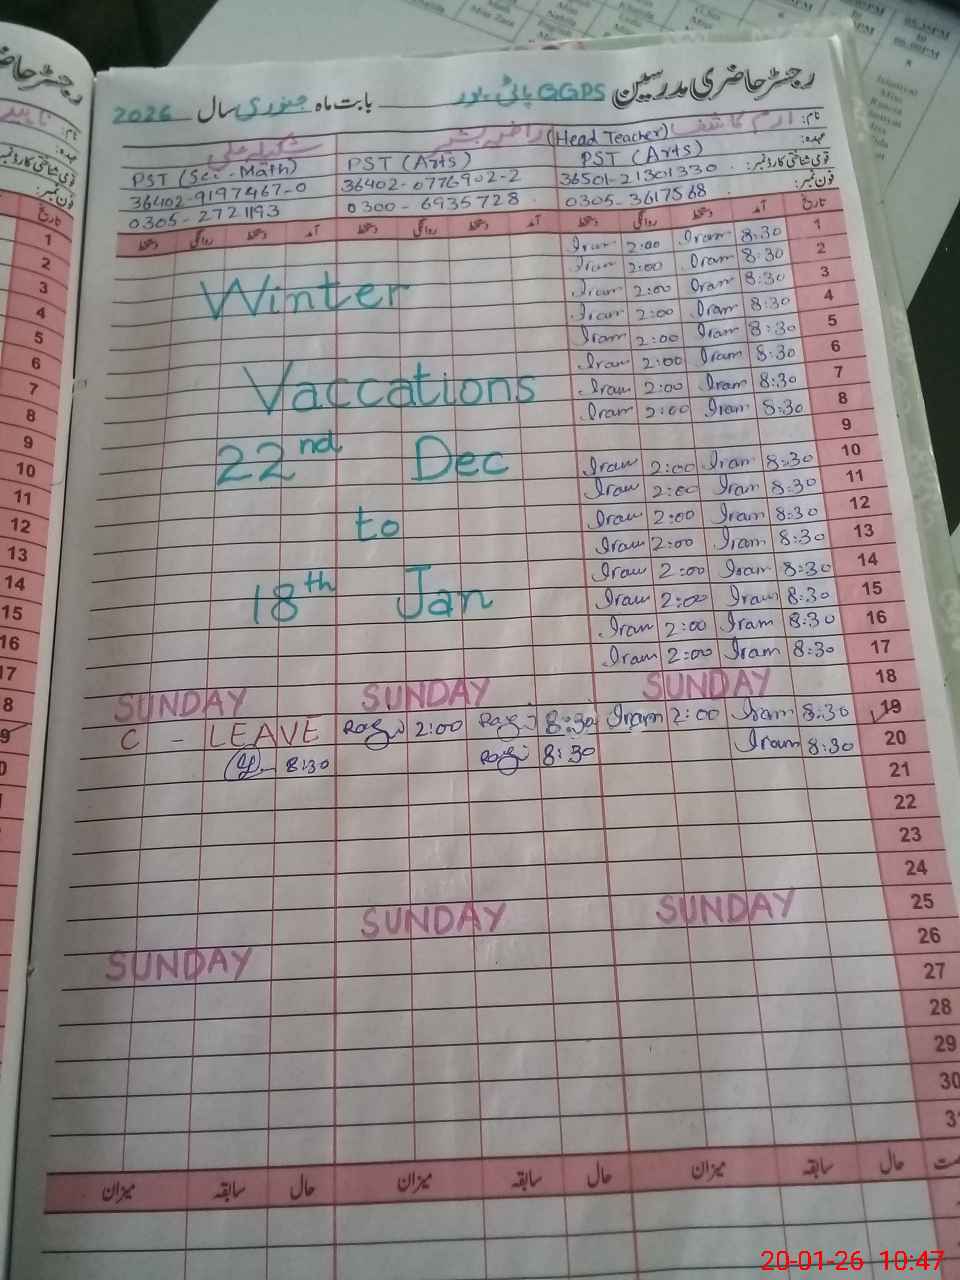 رجسٹر حاضری مدرسین GGPS پائی پور بابت ماہ جنوری سال 2026
نام: ارم کاشف راضیہ بشیر شکیلہ علی
عہدہ: (Head Teacher)
PST (Arts) PST (Arts) PST (Sci-Math)
قومی شناختی کارڈ نمبر: 36501-21301330 36402-0776902-2 36402-9197467-0
فون نمبر: 0305-3617568 0300-6935728 0305-2721193
تاریخ آمد دستخط روانگی دستخط آمد دستخط روانگی دستخط آمد دستخط روانگی دستخط
1 8:30 Iram 2:00 Iram
2 8:30 Iram 2:00 Iram
3 8:30 Iram 2:00 Iram
4 8:30 Iram 2:00 Iram
5 8:30 Iram 2:00 Iram
6 8:30 Iram 2:00 Iram
7 8:30 Iram 2:00 Iram
8 8:30 Iram 2:00 Iram
9
10 8:30 Iram 2:00 Iram
11 8:30 Iram 2:00 Iram
12 8:30 Iram 2:00 Iram
13 8:30 Iram 2:00 Iram
14 8:30 Iram 2:00 Iram
15 8:30 Iram 2:00 Iram
16 8:30 Iram 2:00 Iram
17 8:30 Iram 2:00 Iram
Winter
Vaccations
22nd Dec
to
18th Jan
18 SUNDAY SUNDAY SUNDAY
19 8:30 Iram 2:00 Iram 8:30 Razi 2:00 Razi C - LEAVE
20 8:30 Iram 8:30 Razi 8:30
21
22
23
24
25 SUNDAY SUNDAY SUNDAY
26
27
28
29
30
31
حال سابقہ میزان حال سابقہ میزان حال سابقہ میزان
20-01-26 10:47